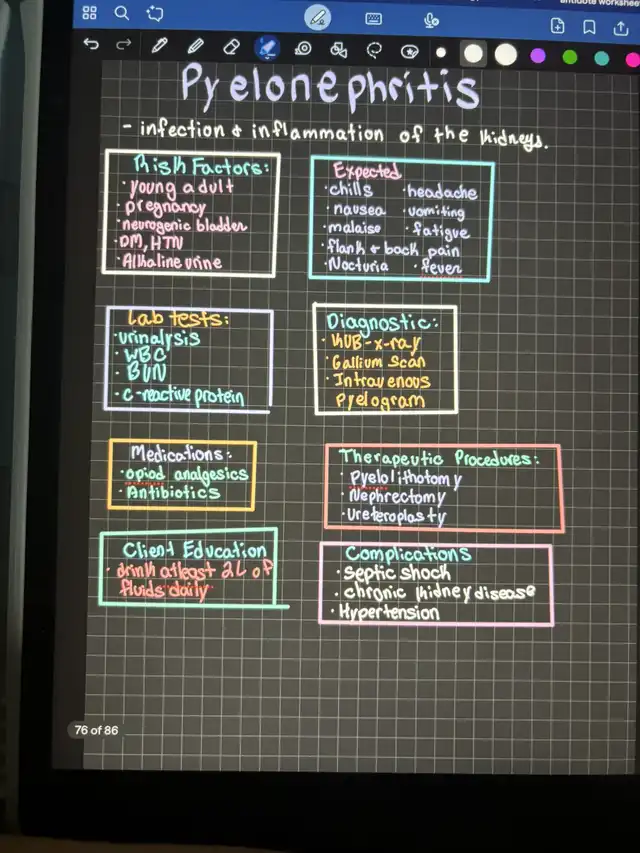 antidote worksheet
Pyelonephritis
- infection & inflammation of the kidneys.
Risk Factors:
· young adult
· pregnancy
· neurogenic bladder
· DM, HTN
· Alkaline urine
Expected
· chills · headache
· nausea · vomiting
· malaise · fatigue
· flank & back pain
· Nocturia · fever
Lab tests:
· urinalysis
· WBC
· BUN
· c-reactive protein
Diagnostic:
· KUB-x-ray
· Gallium Scan
· Intravenous
Pyelogram
Medications:
· opiod analgesics
· Antibiotics
Therapeutic Procedures:
· Pyelolithotomy
· Nephrectomy
· Ureteroplasty
Client Education
· drink atleast 2L of
fluids daily
Complications
· Septic shock
· chronic kidney disease
· Hypertension
76 of 86